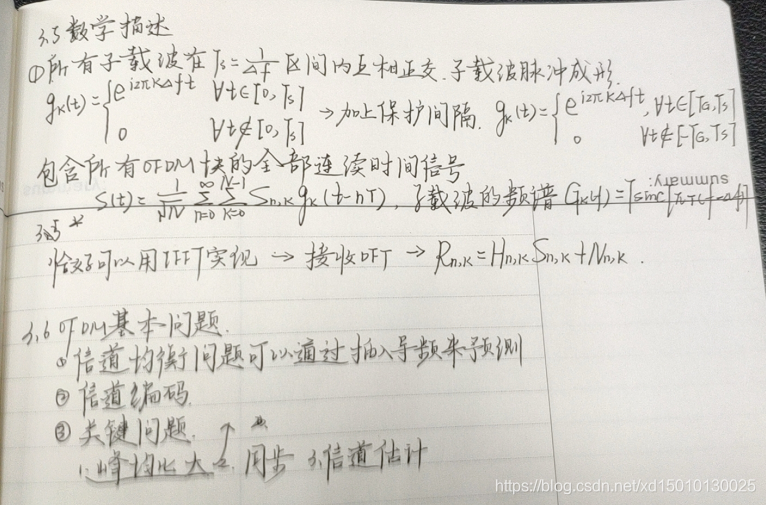 3.5 数学描述
①所有子载波在 Ts=1/Δf 区间内互相正交.子载波脉冲成形.
gk(t)={e^{i2πkΔft} ∀t∈[0,Ts] →加上保护间隔. gk(t)={e^{i2πkΔft}, ∀t∈[TG,Ts]
0 ∀t∉[0,Ts] 0 ∀t∉[-TG,Ts]
包含所有OFDM块的全部连续时间信号
summary:
S(t)=1/√N ∑_{n=0}^{∞} ∑_{k=0}^{N-1} Sn,k gk(t-nT), 子载波的频谱 Gk(f)=Tsinc[πT(f-kΔf)]
*
恰好可以用IFFT实现 → 接收DFT → Rn,k=Hn,kSn,k+Nn,k.
3.6 OFDM基本问题.
① 信道均衡问题可以通过插入导频来预测
② 信道编码
③ 关键问题. ↑ *
1.峰均比大 2. 同步 3.信道估计
https://blog.csdn.net/xd15010130025